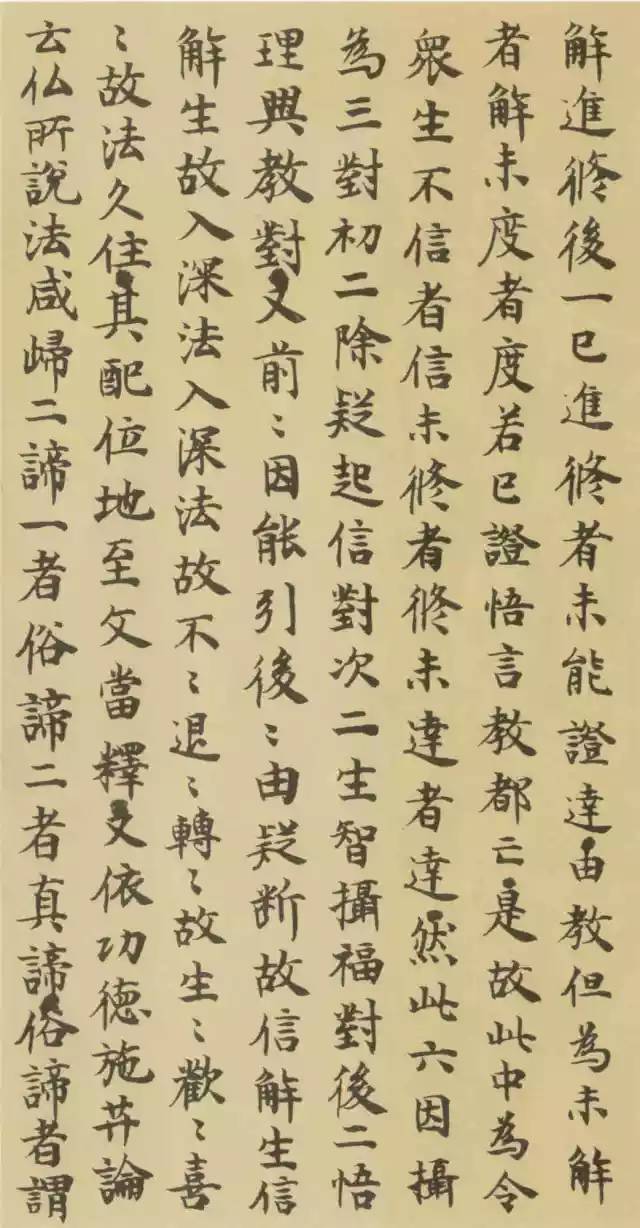 解進修後一已進修者未能證達由教但為未解
者解未度者度若已證悟言教都亡是故此中為令
眾生不信者信未修者修未達者達然此六因攝
為三對初二除疑起信對次二生智攝福對後二悟
理與教對又前〻因能引後〻由疑断故信解生信
解生故入深法入深法故不〻退〻轉〻故生〻歡〻喜
〻故法久住其配位地至文當釋又依功德施菩論
云仏所說法咸歸二諦一者俗諦二者真諦俗諦者謂